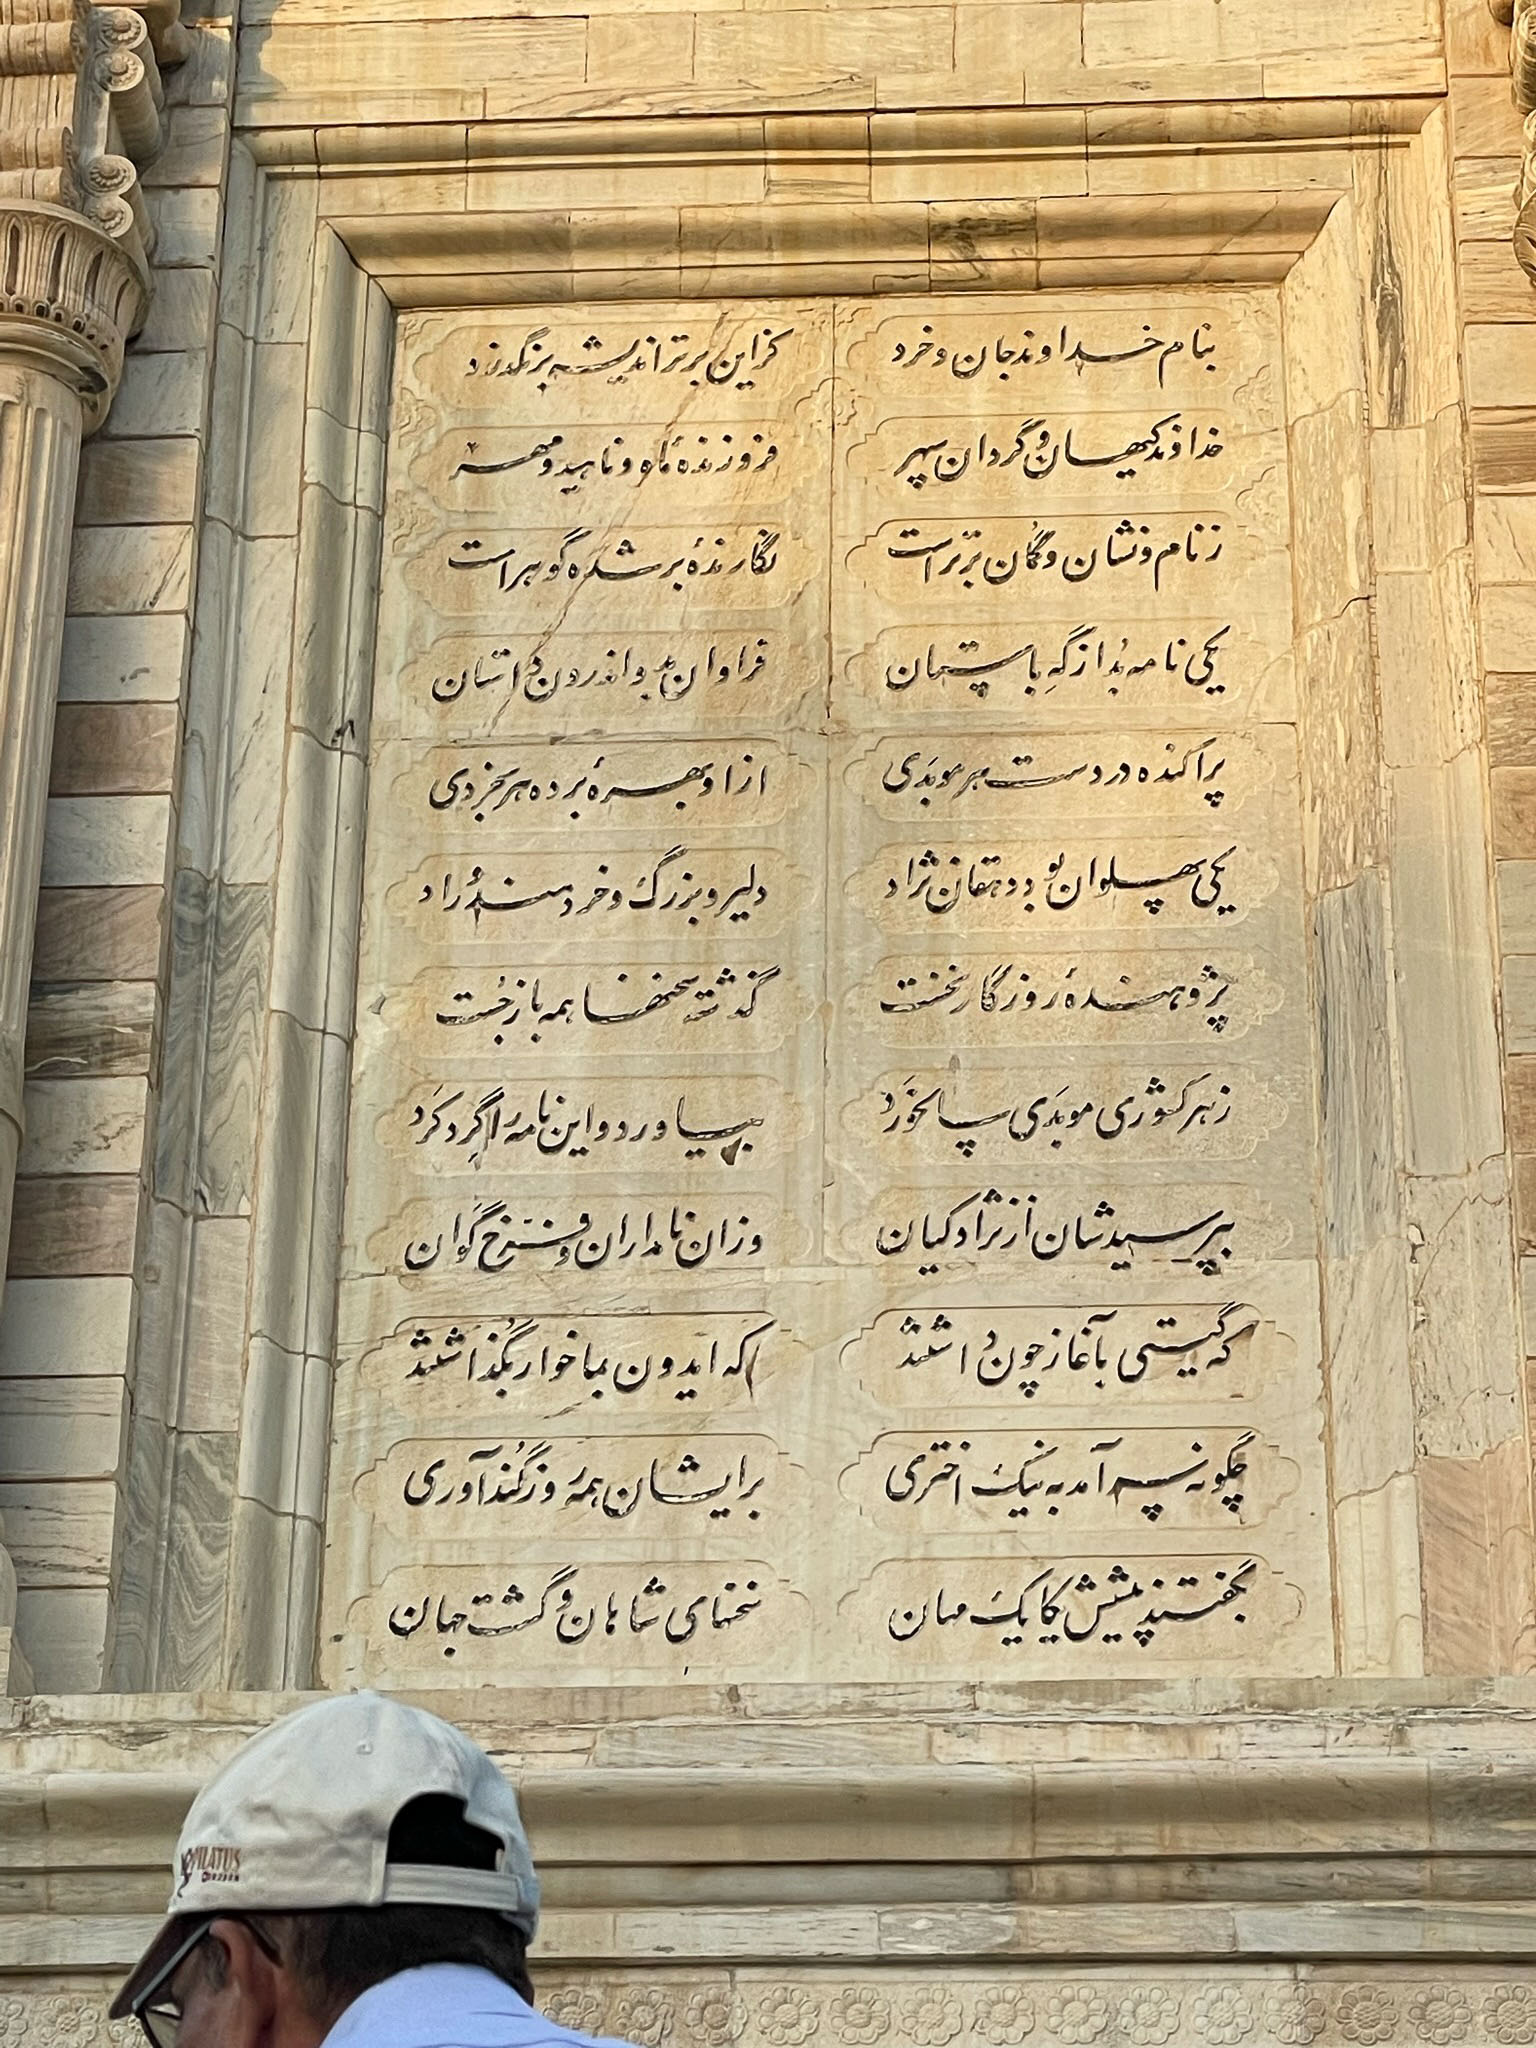 بنام خداوند جان و خرد کزاین برتر اندیشه برنگذرد
خداوند کیهان و گردان سپهر فروزندهٔ ماه و ناهید و مهر
ز نام و نشان و گمان برتر است نگارندهٔ بر شده گوهر است
یکی نامه بُد از گهِ باستان فراوان بدو اندرون داستان
پراکنده در دست هر موبَدی از او بهرهٔ برده هر بخردی
یکی پهلوان بود دهقان نژاد دلیر و بزرگ و خردمند و راد
پژوهندهٔ روزگار نخست گذشته سخنها همه باز جُست
ز هر کشوری موبَدی سالخَورد بیاورد و این نامه را گِرد کَرد
بپرسیدشان از نژاد کیان وزان نامداران و فرّخ گَوان
که گیتی بآغاز چون داشتند که ایدون بما خوار بگُذاشتند
چگونه سرآمد به نیک اختری برایشان همه روز گُندآوری
بگفتند پیشش یکایک مهان سخنهای شاهان و گشت جهان
PILATUS